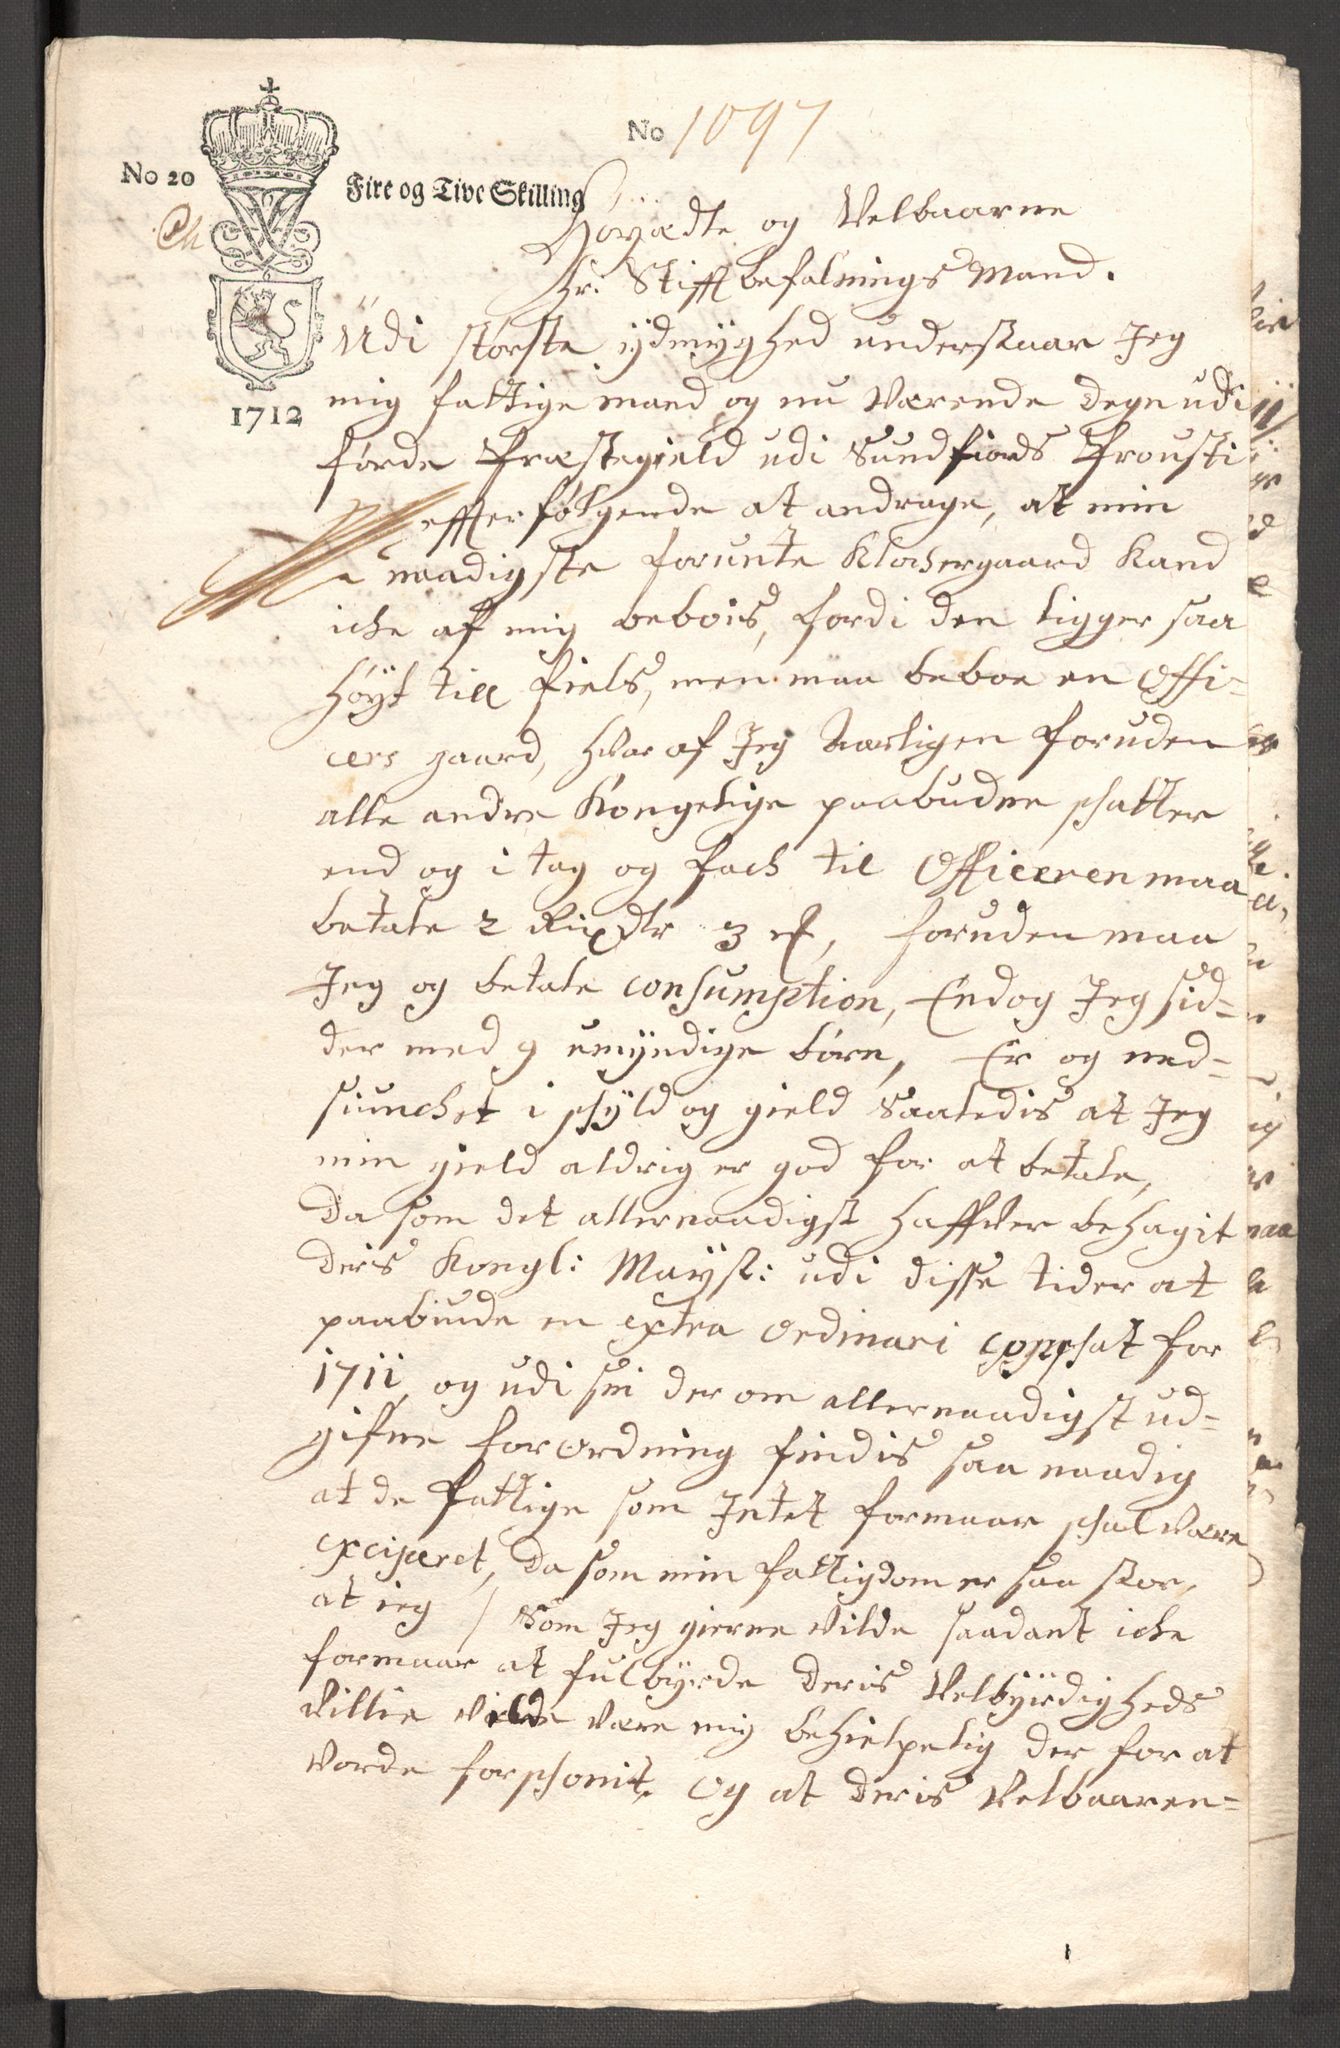 No 1097
No 20
Fire og Tive Skilling
1712
Høyædle og Velbaarne
Hr: Stifftbefalnings Mand.
Udi største ydmyghed understaar Jeg
mig fattige mand og nu værende degn udi
førde Præstegield udi Sundfiords Prousti
effterfølgende at andrage, at min
naadigste forunte Klochergaard Kand
iche af mig bebois, fordi den ligger saa
høyt till fiels, men maa beboe en Offi-
cers gaard, hvor af Jeg Aarligen foruden
alle andre Kongelige paabudne schatter
end og i tag og fach til Officeren maa
betale 2 Rixdlr 3 , foruden maa
Jeg og betale Consumption, Endog Jeg sid-
der med 9 umyndige børn, Er og ned-
siunchet i schyld og gield Saaledis at Jeg
min gield aldrig er god for at betale,
Da som det allernaadigst haffver behagit
Deris Kongl: Mayst: udi disse tider at
paabiude en extra ordinari Coppschat for
1711, og udi sin der om allernaadigst ud-
gifne forordning findis saa naadig
at de fattige som Intet formaar schal være
exciperet, Da som min fattigdom er saa stor,
at ieg / Som Jeg gierne vilde saadant iche
formaar at fulbyrde Deris Velbyrdigheds
Villie vilde være mig behielpelig der for at
vorde forschonit, Og at Deris Velbaaren-